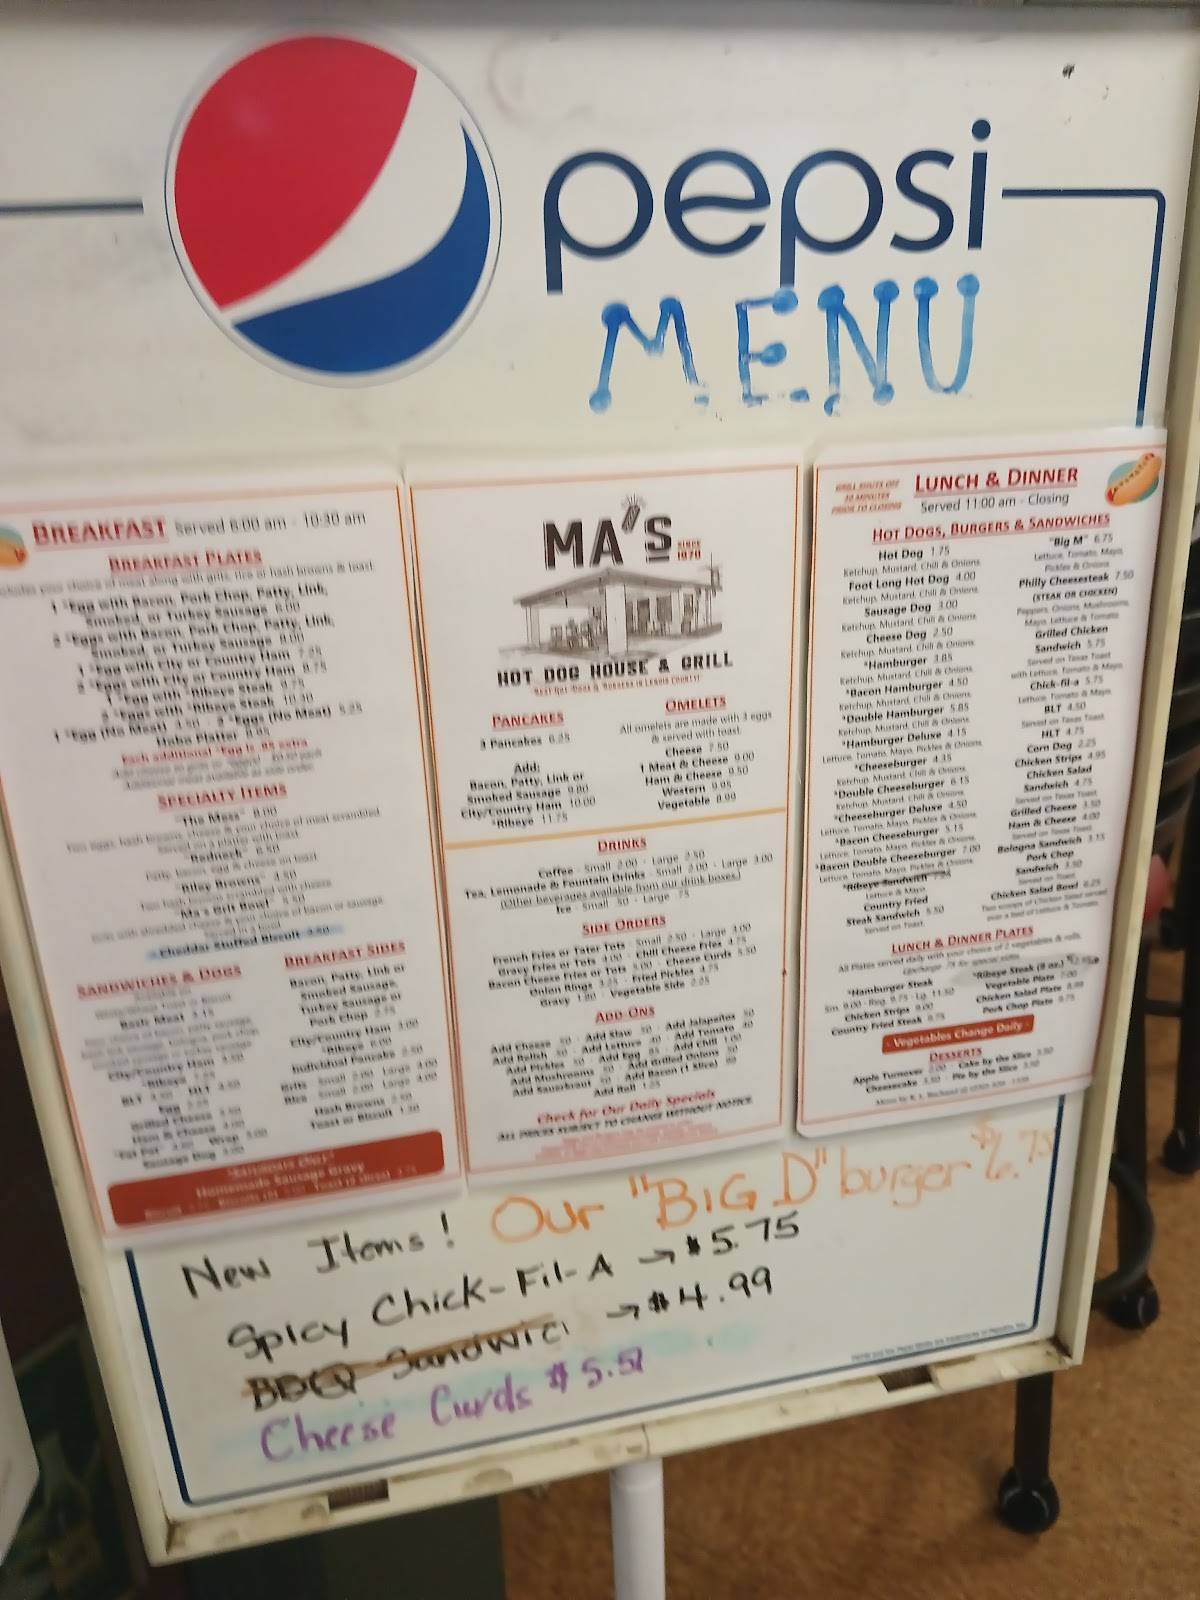 pepsi
MENU
BREAKFAST Served 6:00 am - 10:30 am
BREAKFAST PLATES
1 *Egg with Bacon, Pork Chop, Patty, Link,
Smoked, or Turkey Sausage 6.00
2 *Eggs with Bacon, Pork Chop, Patty, Link,
Smoked, or Turkey Sausage 8.00
1 *Egg with City or Country Ham 7.25
2 *Eggs with City or Country Ham 8.75
1 *Egg with *Ribeye Steak 9.75
2 *Eggs with *Ribeye Steak 10.50
1 *Egg (No Meat) 4.50 - 2 *Eggs (No Meat) 5.25
Hobo Platter 8.95
Each additional *Egg is .95 extra
SPECIALTY ITEMS
"The Mess" 8.00
"Redneck" 6.50
"Riley Browns" 4.50
"Ma's Grit Bowl" 5.50
Cheddar Stuffed Biscuit 3.50
SANDWICHES & DOGS
Basic Meat 3.15
City/Country Ham
*Ribeye
BLT HLT
Egg
Grilled Cheese
Ham & Cheese 4.00
"Fat Pat" Wrap
Sausage Dog 3.00
BREAKFAST SIDES
Bacon, Patty, Link or
Smoked Sausage,
Turkey Sausage or
Pork Chop 2.75
City/Country Ham 3.00
*Ribeye 6.00
Individual Pancake 2.50
Grits Small 2.00 Large 4.00
Rice Small 2.00 Large 4.00
Hash Browns 2.50
Toast or Biscuit 1.30
Homemade Sausage Gravy
MA'S
SINCE
1970
HOT DOG HOUSE & GRILL
"BEST HOT DOGS & BURGERS IN LENOIR COUNTY"
PANCAKES
3 Pancakes 6.25
Add:
Bacon, Patty, Link or
Smoked Sausage 9.00
City/Country Ham 10.00
*Ribeye 11.75
OMELETS
All omelets are made with 3 eggs
& served with toast.
Cheese 7.50
1 Meat & Cheese 9.00
Ham & Cheese 9.50
Western 9.95
Vegetable 8.99
DRINKS
Coffee - Small 2.00 - Large 2.50
Tea, Lemonade & Fountain Drinks - Small 2.00 - Large 3.00
(Other beverages available from our drink boxes.)
Ice - Small .50 - Large .75
SIDE ORDERS
French Fries or Tater Tots - Small 2.50 - Large 3.00
Gravy Fries or Tots 4.00 - Chili Cheese Fries 4.75
Bacon Cheese Fries or Tots 5.00 - Cheese Curds 5.50
Onion Rings 3.25 - Fried Pickles 4.75
Gravy 1.80 - Vegetable Side 2.25
ADD-ONS
Add Cheese .50 - Add Slaw .50 - Add Jalapeños .50
Add Relish .50 - Add Lettuce .40 - Add Tomato .40
Add Pickles .50 - Add Egg .95 - Add Chili 1.00
Add Mushrooms .50 - Add Grilled Onions .50
Add Sauerkraut .50 - Add Bacon (1 Slice) .60
Add Roll 1.25
Check for Our Daily Specials
ALL PRICES SUBJECT TO CHANGE WITHOUT NOTICE.
GRILL SHUTS OFF
30 MINUTES
PRIOR TO CLOSING
LUNCH & DINNER
Served 11:00 am - Closing
HOT DOGS, BURGERS & SANDWICHES
Hot Dog 1.75
Ketchup, Mustard, Chili & Onions
Foot Long Hot Dog 4.00
Ketchup, Mustard, Chili & Onions
Sausage Dog 3.00
Ketchup, Mustard, Chili & Onions
Cheese Dog 2.50
Ketchup, Mustard, Chili & Onions
*Hamburger 3.85
Ketchup, Mustard, Chili & Onions
*Bacon Hamburger 4.50
Ketchup, Mustard, Chili & Onions
*Double Hamburger 5.85
Ketchup, Mustard, Chili & Onions
*Hamburger Deluxe 4.15
Lettuce, Tomato, Mayo, Pickles & Onions
*Cheeseburger 4.35
Ketchup, Mustard, Chili & Onions
*Double Cheeseburger 6.15
Ketchup, Mustard, Chili & Onions
*Cheeseburger Deluxe 4.50
Lettuce, Tomato, Mayo, Pickles & Onions
*Bacon Cheeseburger 5.15
Lettuce, Tomato, Mayo, Pickles & Onions
*Bacon Double Cheeseburger 7.00
Lettuce, Tomato, Mayo, Pickles & Onions
*Ribeye Sandwich
Lettuce & Mayo
Country Fried
Steak Sandwich 5.50
Served on Toast
"Big M" 6.75
Lettuce, Tomato, Mayo,
Pickles & Onions
Philly Cheesesteak 7.50
(STEAK OR CHICKEN)
Peppers, Onions, Mushrooms,
Mayo, Lettuce & Tomato
Grilled Chicken
Sandwich 5.75
Served on Texas Toast
with Lettuce, Tomato & Mayo
Chick-fil-a 5.75
Lettuce, Tomato & Mayo
BLT 4.50
Served on Texas Toast
HLT 4.75
Corn Dog 2.25
Chicken Strips 4.95
Chicken Salad
Sandwich 4.75
Served on Texas Toast
Grilled Cheese 3.50
Ham & Cheese 4.00
Served on Texas Toast
Bologna Sandwich 3.15
Pork Chop
Sandwich 3.50
Served on Toast
Chicken Salad Bowl 6.25
Two scoops of Chicken Salad served
over a Bed of Lettuce & Tomato.
LUNCH & DINNER PLATES
All Plates served daily with your choice of 2 vegetables & rolls.
*Hamburger Steak
Sm. 9.00 - Reg. 9.75 - Lg. 11.50
Chicken Strips 9.00
Country Fried Steak 9.75
*Ribeye Steak (8 oz.)
Vegetable Plate 7.00
Chicken Salad Plate 8.99
Pork Chop Plate 8.75
- Vegetables Change Daily -
DESSERTS
Apple Turnover 2.00 - Cake by the Slice 3.50
Cheesecake 3.50 - Pie by the Slice 3.50
New Items! Our "BIG D" burger $6.75
Spicy Chick-Fil-A → $5.75
BBQ Sandwic → $4.99
Cheese Curds $5.51